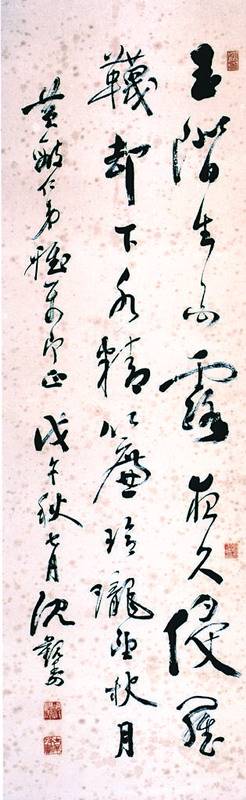 玉階生白露夜久侵羅
韈却下水精簾玲瓏望秋月
仁弟雅屬正戊午秋七月沈觀壽